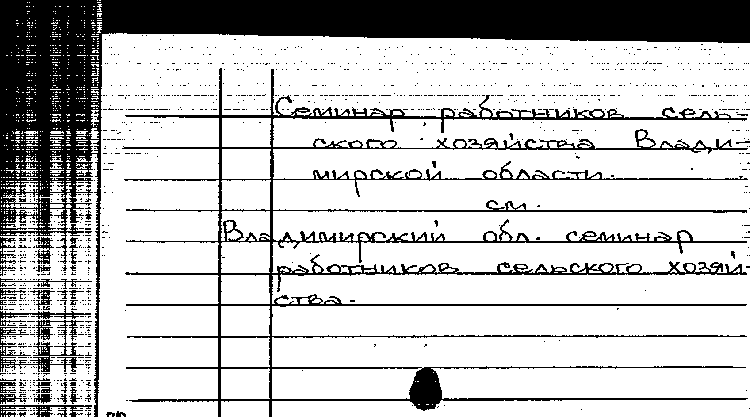 Семинар работников сель-
ского хозяйства Влади-
мирской области.
см.
Владимирский обл. семинар
работников сельского хозяй-
ства.